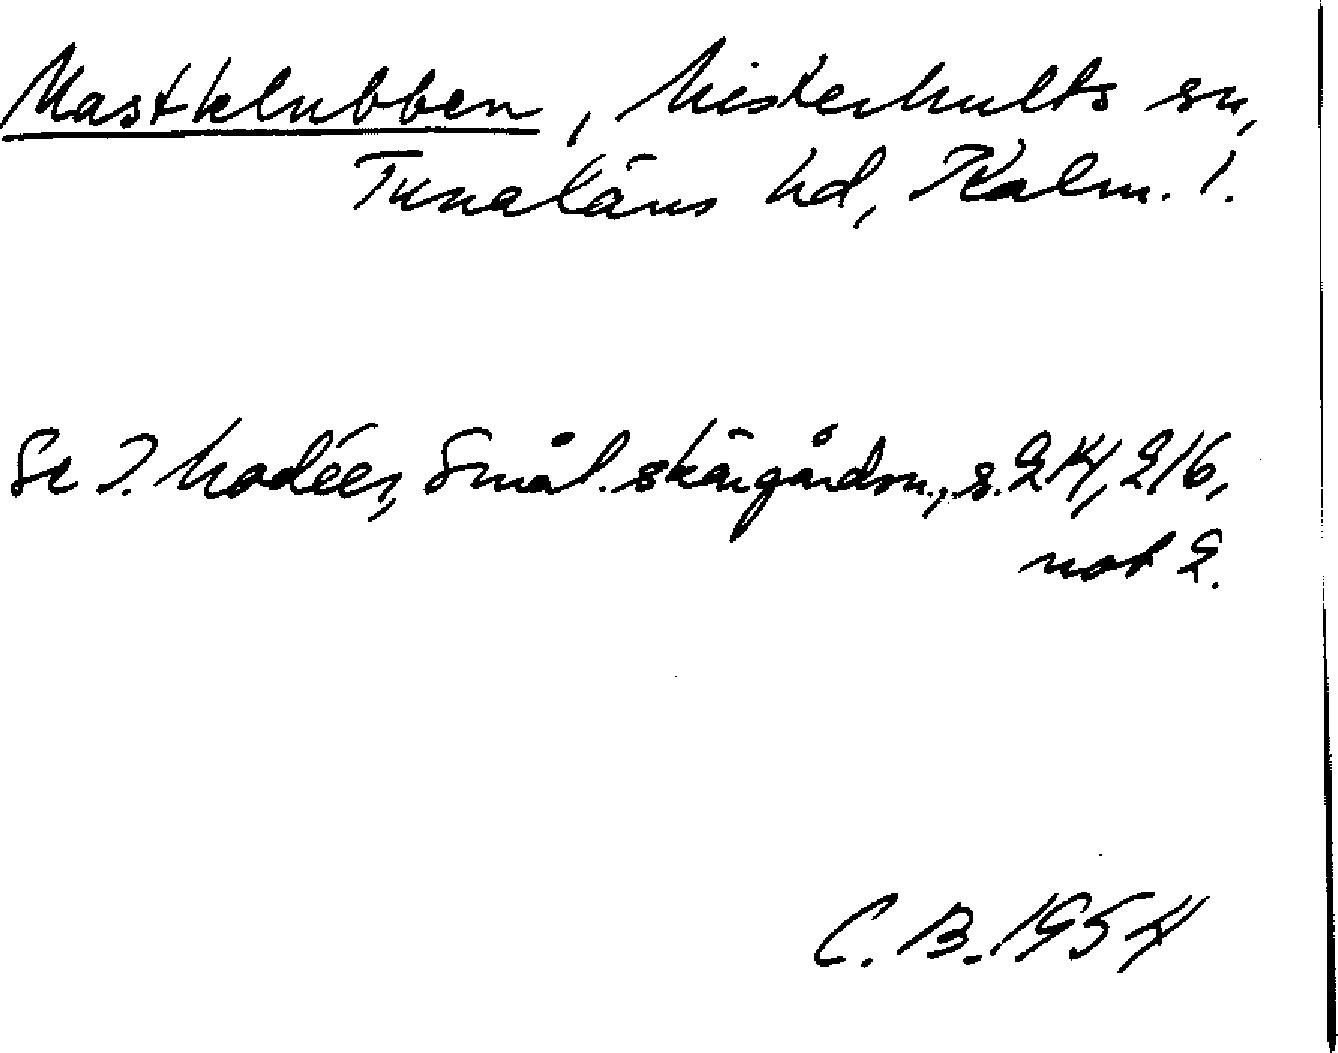 Mastklubben, Misterhults sn,
Tunaläns hd, Kalm. l.
Se I. Modéer, Smål. skärgårdsn., s. 214, 216,
not 2.
C. B. 1954